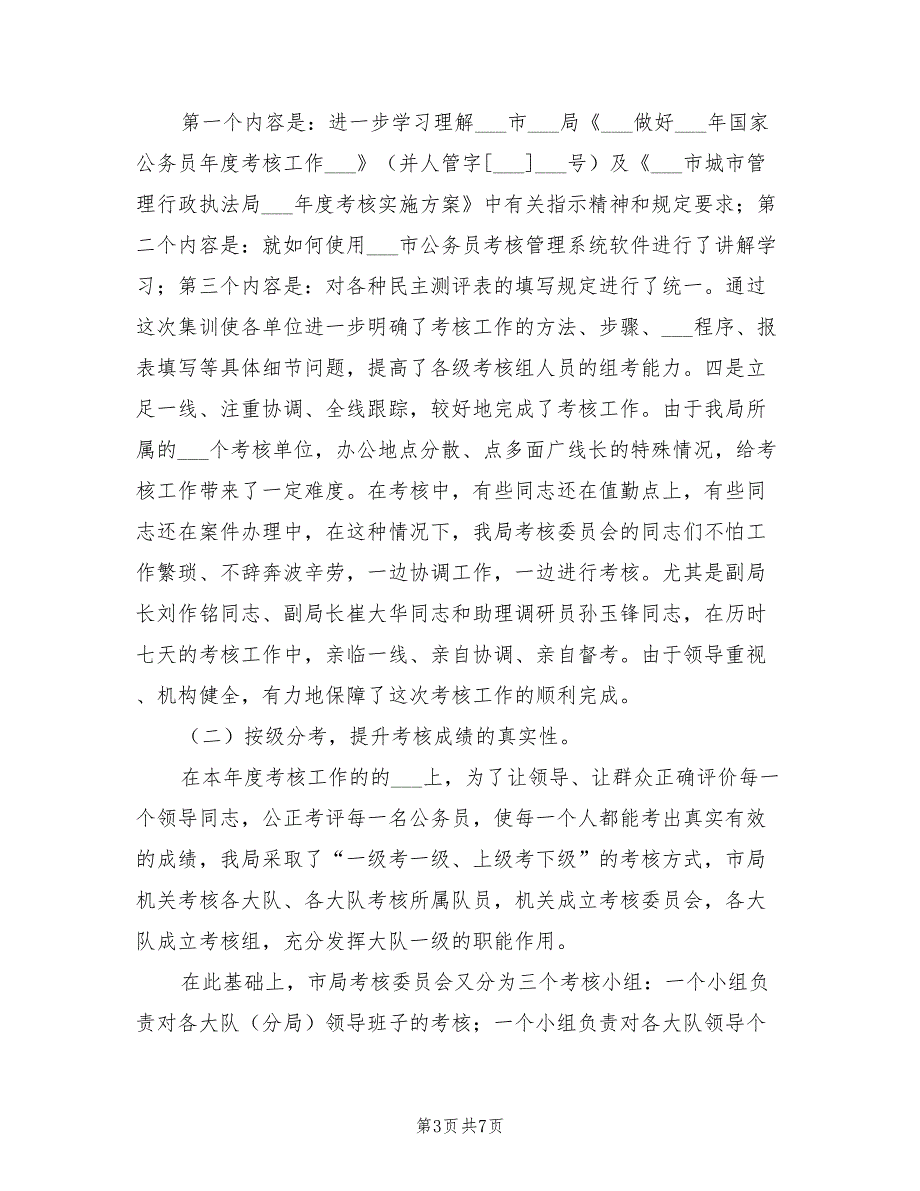 第一个内容是：进一步学习理解___市___局《___做好___年国家
公务员年度考核工作___》（并人管字[___]___号）及《___市城市管
理行政执法局___年度考核实施方案》中有关指示精神和规定要求；第
二个内容是：就如何使用___市公务员考核管理系统软件进行了讲解学
习；第三个内容是：对各种民主测评表的填写规定进行了统一。通过
这次集训使各单位进一步明确了考核工作的方法、步骤、___程序、报
表填写等具体细节问题，提高了各级考核组人员的组考能力。四是立
足一线、注重协调、全线跟踪，较好地完成了考核工作。由于我局所
属的___个考核单位，办公地点分散、点多面广线长的特殊情况，给考
核工作带来了一定难度。在考核中，有些同志还在值勤点上，有些同
志还在案件办理中，在这种情况下，我局考核委员会的同志们不怕工
作繁琐、不辞奔波辛劳，一边协调工作，一边进行考核。尤其是副局
长刘作铭同志、副局长崔大华同志和助理调研员孙玉锋同志，在历时
七天的考核工作中，亲临一线、亲自协调、亲自督考。由于领导重视
、机构健全，有力地保障了这次考核工作的顺利完成。
（二）按级分考，提升考核成绩的真实性。
在本年度考核工作的的___上，为了让领导、让群众正确评价每一
个领导同志，公正考评每一名公务员，使每一个人都能考出真实有效
的成绩，我局采取了“一级考一级、上级考下级”的考核方式，市局
机关考核各大队、各大队考核所属队员，机关成立考核委员会，各大
队成立考核组，充分发挥大队一级的职能作用。
在此基础上，市局考核委员会又分为三个考核小组：一个小组负
责对各大队（分局）领导班子的考核；一个小组负责对各大队领导个
第3页共7页